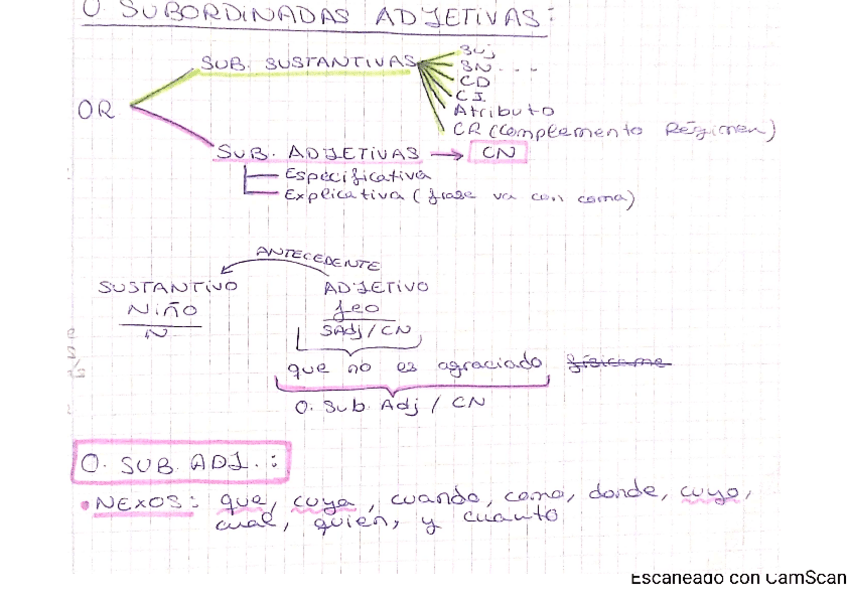 O. SUBORDINADAS ADJETIVAS:
SUB. SUSTANTIVAS
Suj
SN...
CD
CI
Atributo
CR (Complemento Régimen)
OR
SUB. ADJETIVAS → CN
Especificativa
Explicativa (frase va con coma)
ANTECEDENTE
SUSTANTIVO ADJETIVO
Niño feo
N SAdj/CN
que no es agraciado físicame
O. Sub. Adj / CN
O. SUB. ADJ.:
• NEXOS: que, cuya, cuando, como, donde, cuyo,
cual, quien, y cuanto
Escaneado con CamScan